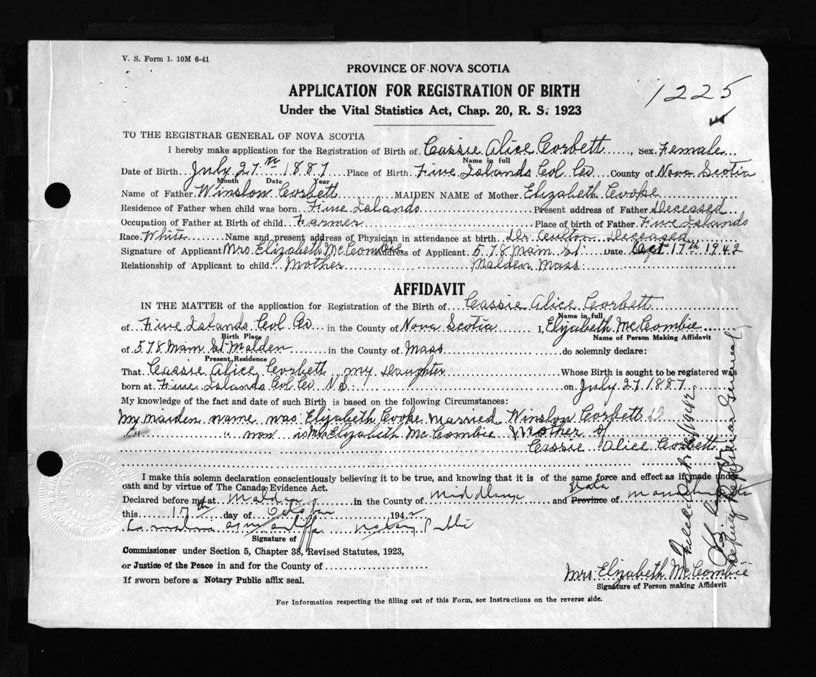 V. S. Form 1. 10M 6-41
PROVINCE OF NOVA SCOTIA
1225
APPLICATION FOR REGISTRATION OF BIRTH
Under the Vital Statistics Act, Chap. 20, R. S. 1923
TO THE REGISTRAR GENERAL OF NOVA SCOTIA
I hereby make application for the Registration of Birth of Cassie Alice Corbett, sex Female
Name in full
Date of Birth July 27th 1887 Place of Birth Five Islands Col. Co Nova Scotia
Month Date Year
Name of Father Winslow Corbett MAIDEN NAME of Mother Elizabeth Cooke
Residence of Father when child was born Five Islands Present address of Father Deceased
Occupation of Father at Birth of child Farmer Place of birth of Father Five Islands
Race White Name and present address of Physician in attendance at birth Dr. Deceased
Signature of Applicant Mrs Elizabeth McCombie Address of Applicant 578 Main St Date Oct 17th 1942
Relationship of Applicant to child Mother Malden Mass
AFFIDAVIT
IN THE MATTER of the application for Registration of the Birth of Cassie Alice Corbett
Name in full
of Five Islands Col Co in the County of Nova Scotia I, Elizabeth McCombie
Birth Place Name of Person Making Affidavit
of 578 Main St Malden in the County of Mass do solemnly declare:
Present Residence
That Cassie Alice Corbett my daughter Whose Birth is sought to be registered was
born at Five Islands Col. Co N.S. on July 27 1887
My knowledge of the fact and date of such Birth is based on the following Circumstances:
My maiden name was Elizabeth Cooke married Winslow Corbett
" " now is Mrs Elizabeth McCombie Mother of
Cassie Alice Corbett
I make this solemn declaration conscientiously believing it to be true, and knowing that it is of the same force and effect as if made under
oath and by virtue of The Canada Evidence Act.
Declared before me at Malden in the County of Middlesex and State Province of
this 17th day of October 1942
Notary Public
Signature of
Commissioner under Section 5, Chapter 38, Revised Statutes, 1923,
or Justice of the Peace in and for the County of
If sworn before a Notary Public affix seal.
Mrs. Elizabeth McCombie
Signature of Person making Affidavit
For Information respecting the filling out of this Form, see Instructions on the reverse side.
Deputy Registrar General